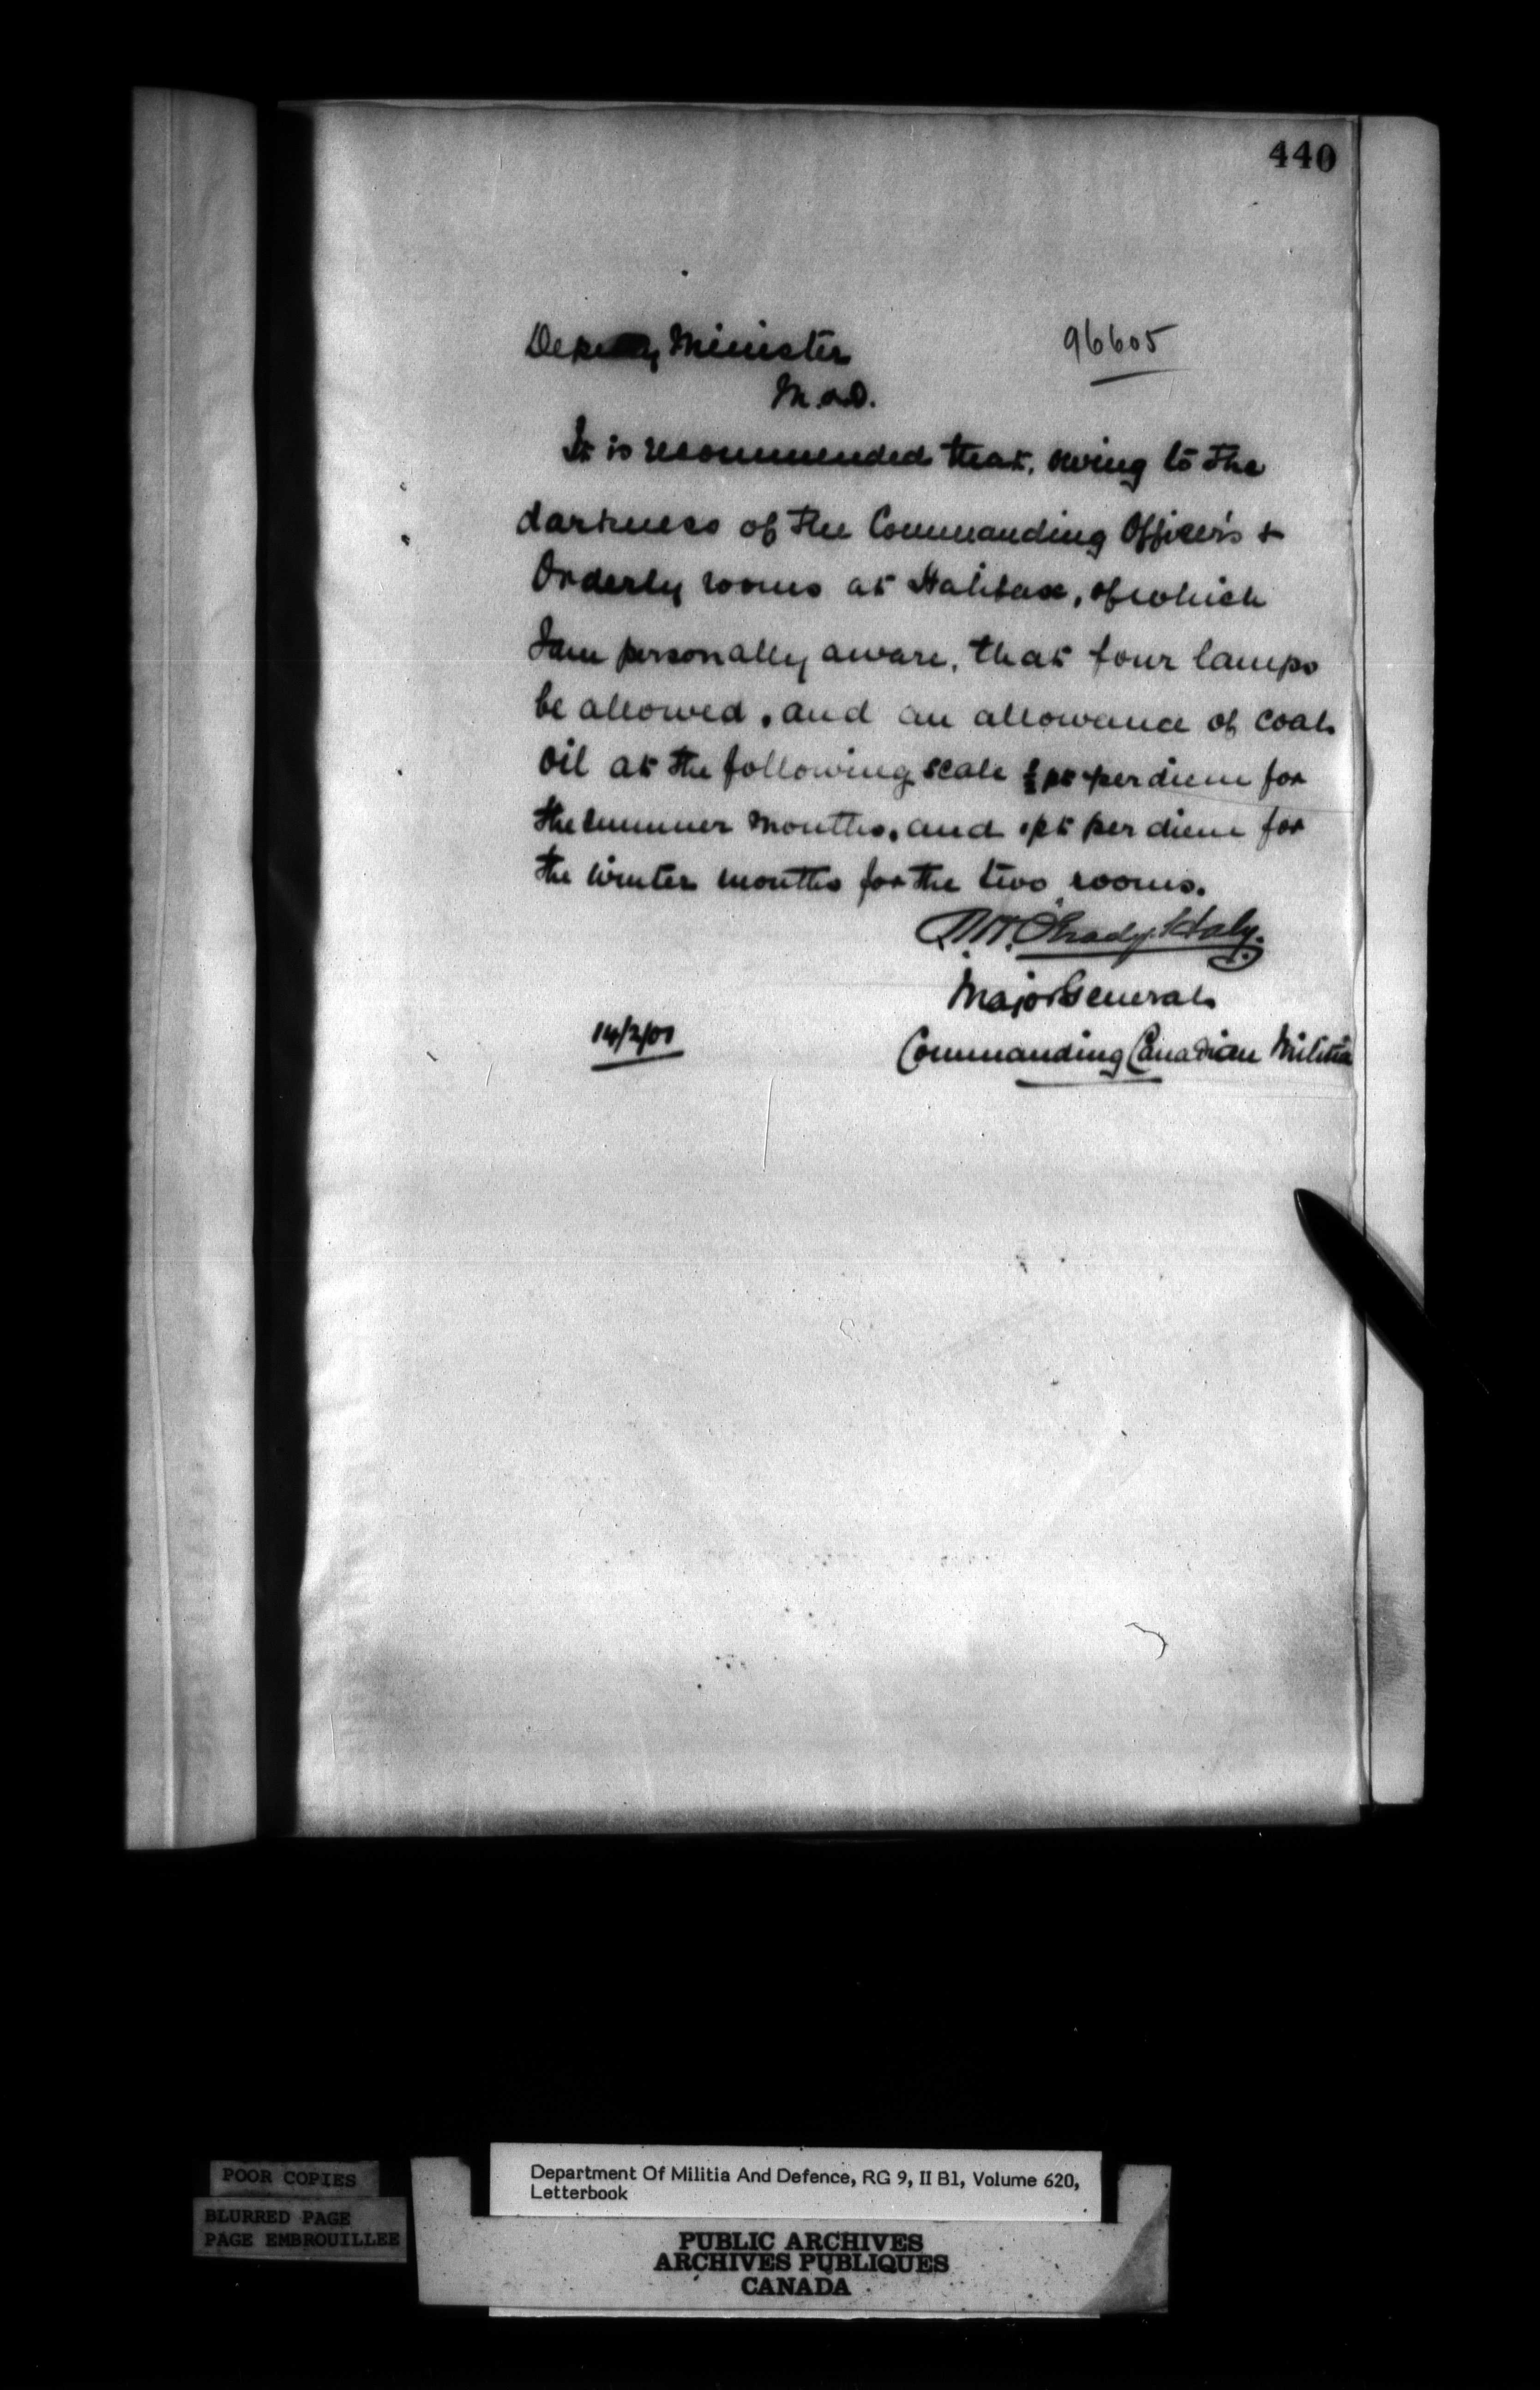 440
Deputy Minister
96605
M. & D.
It is recommended that, owing to the
darkness of the Commanding Officer's &
Orderly rooms at Halifax, of which
I am personally aware, that four lamps
be allowed, and an allowance of coal
oil at the following scale ½ pt per diem for
the summer months, and 1 pt per diem for
the winter months for the two rooms.
R. H. O'Grady-Haly.
Major General
14/2/01
Commanding Canadian Militia
POOR COPIES
BLURRED PAGE
PAGE EMBROUILLEE
Department Of Militia And Defence, RG 9, II B1, Volume 620,
Letterbook
PUBLIC ARCHIVES
ARCHIVES PUBLIQUES
CANADA